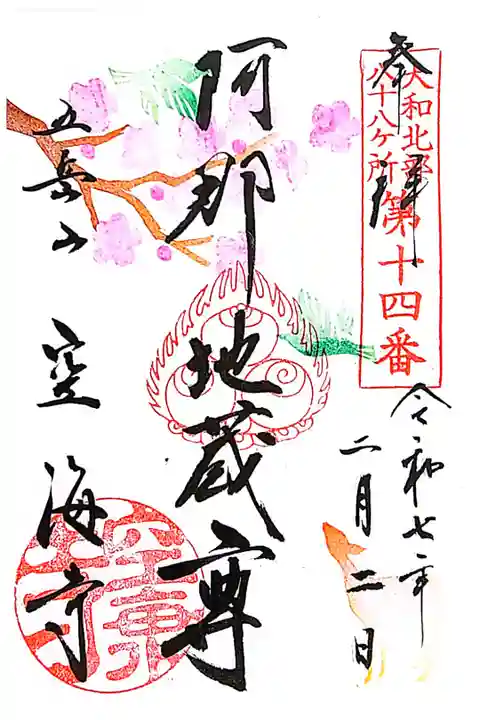 奉拝
大和北部
八十八ヶ所
第十四番
令和七年
二月二日
阿那地蔵尊
五岳山
空海寺